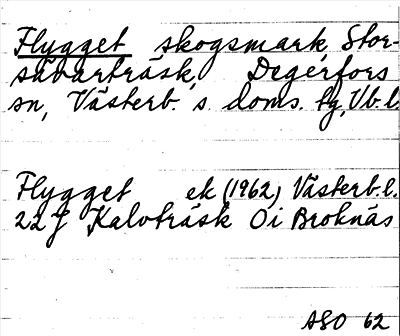 Flygget skogsmark, Stor-
sävarträsk, Degerfors
sn, Västerb. s doms. tg, Vb. l.
Flygget ek (1962) Västerb. l.
22 J Kalvträsk Oi Broknäs
ASO 62